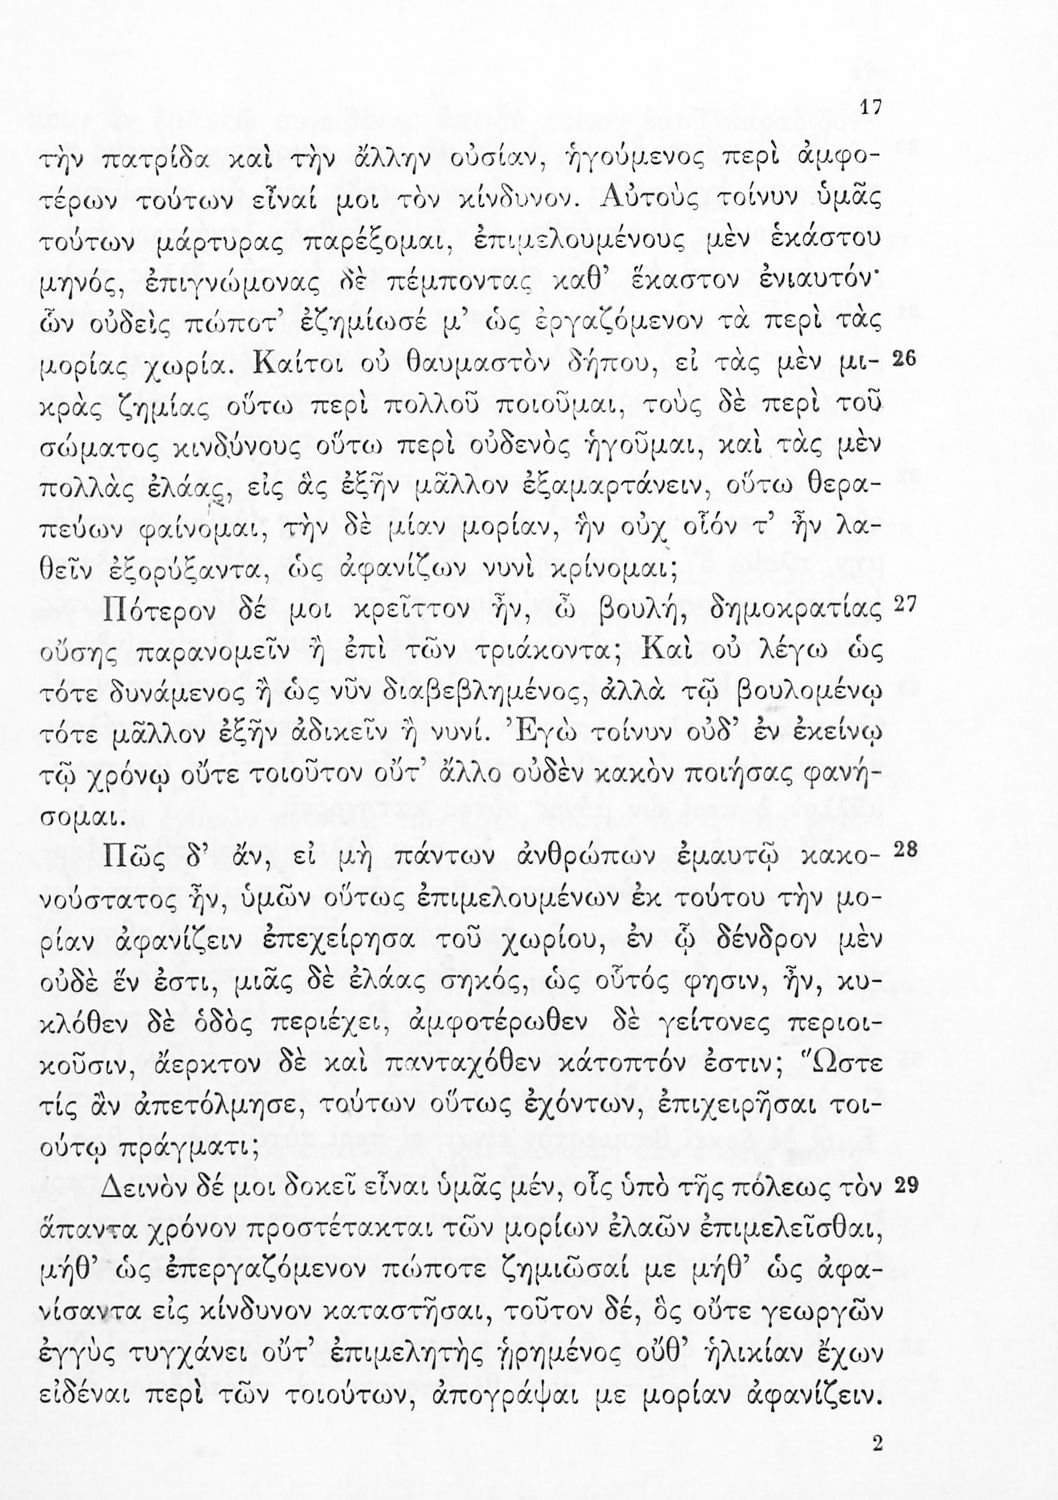 17
τὴν πατρίδα καὶ τὴν ἄλλην οὐσίαν, ἡγούμενος περὶ ἀμφο-
τέρων τούτων εἶναί μοι τὸν κίνδυνον. Αὐτοὺς τοίνυν ὑμᾶς
τούτων μάρτυρας παρέξομαι, ἐπιμελουμένους μὲν ἑκάστου
μηνός, ἐπιγνώμονας δὲ πέμποντας καθ’ ἕκαστον ἐνιαυτόν·
ὧν οὐδεὶς πώποτ’ ἐζημίωσέ μ’ ὡς ἐργαζόμενον τὰ περὶ τὰς
μορίας χωρία. Καίτοι οὐ θαυμαστὸν δήπου, εἰ τὰς μὲν μι- 26
κρὰς ζημίας οὕτω περὶ πολλοῦ ποιοῦμαι, τοὺς δὲ περὶ τοῦ
σώματος κινδύνους οὕτω περὶ οὐδενὸς ἡγοῦμαι, καὶ τὰς μὲν
πολλὰς ἐλάας, εἰς ἃς ἐξῆν μᾶλλον ἐξαμαρτάνειν, οὕτω θερα-
πεύων φαίνομαι, τὴν δὲ μίαν μορίαν, ἣν οὐχ οἷόν τ’ ἦν λα-
θεῖν ἐξορύξαντα, ὡς ἀφανίζων νυνὶ κρίνομαι;
Πότερον δέ μοι κρεῖττον ἦν, ὦ βουλή, δημοκρατίας 27
οὔσης παρανομεῖν ἢ ἐπὶ τῶν τριάκοντα; Καὶ οὐ λέγω ὡς
τότε δυνάμενος ἢ ὡς νῦν διαβεβλημένος, ἀλλὰ τῷ βουλομένῳ
τότε μᾶλλον ἐξῆν ἀδικεῖν ἢ νυνί. Ἐγὼ τοίνυν οὐδ’ ἐν ἐκείνῳ
τῷ χρόνῳ οὔτε τοιοῦτον οὔτ’ ἄλλο οὐδὲν κακὸν ποιήσας φανή-
σομαι.
Πῶς δ’ ἄν, εἰ μὴ πάντων ἀνθρώπων ἐμαυτῷ κακο- 28
νούστατος ἦν, ὑμῶν οὕτως ἐπιμελουμένων ἐκ τούτου τὴν μο-
ρίαν ἀφανίζειν ἐπεχείρησα τοῦ χωρίου, ἐν ᾧ δένδρον μὲν
οὐδὲ ἕν ἐστι, μιᾶς δὲ ἐλάας σηκός, ὡς οὗτός φησιν, ἦν, κυ-
κλόθεν δὲ ὁδὸς περιέχει, ἀμφοτέρωθεν δὲ γείτονες περιοι-
κοῦσιν, ἄερκτον δὲ καὶ πανταχόθεν κάτοπτόν ἐστιν; Ὥστε
τίς ἂν ἀπετόλμησε, τούτων οὕτως ἐχόντων, ἐπιχειρῆσαι τοι-
ούτῳ πράγματι;
Δεινὸν δέ μοι δοκεῖ εἶναι ὑμᾶς μέν, οἷς ὑπὸ τῆς πόλεως τὸν 29
ἅπαντα χρόνον προστέτακται τῶν μορίων ἐλαῶν ἐπιμελεῖσθαι,
μήθ’ ὡς ἐπεργαζόμενον πώποτε ζημιῶσαί με μήθ’ ὡς ἀφα-
νίσαντα εἰς κίνδυνον καταστῆσαι, τοῦτον δέ, ὃς οὔτε γεωργῶν
ἐγγὺς τυγχάνει οὔτ’ ἐπιμελητὴς ᾑρημένος οὔθ’ ἡλικίαν ἔχων
εἰδέναι περὶ τῶν τοιούτων, ἀπογράψαι με μορίαν ἀφανίζειν.
2